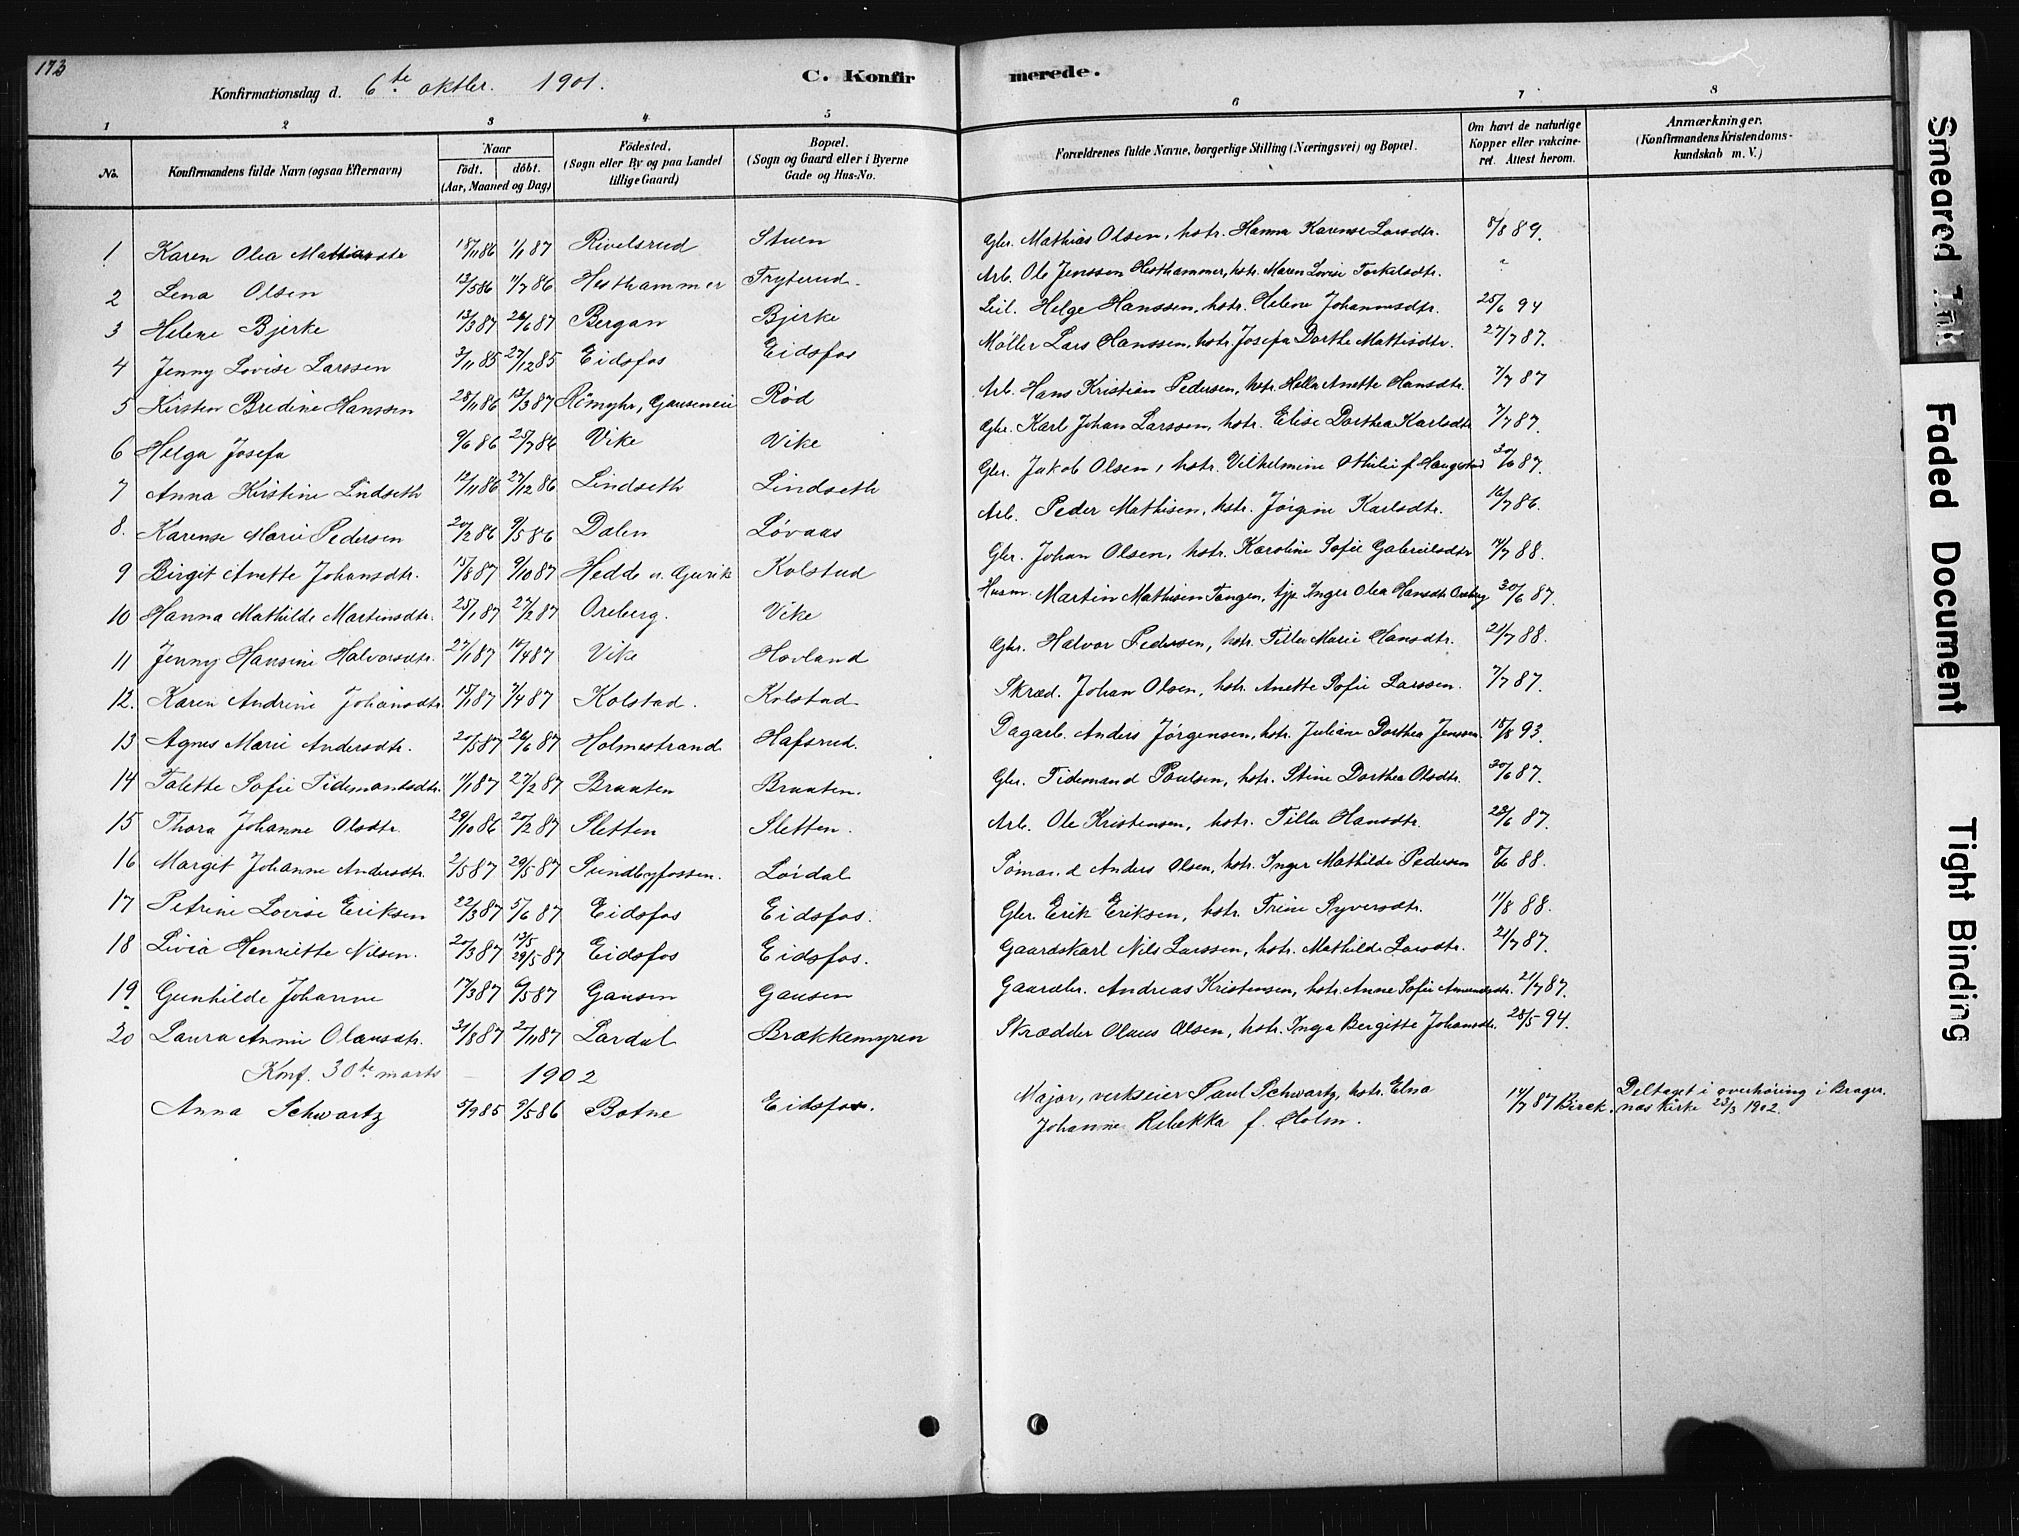 173
C. Konfirmerede.
Konfirmationsdag d. 6te oktbr. 1901.
1 2 3 4 5 6 7 8
No. Konfirmandens fulde Navn (ogsaa Efternavn) Naar født. døbt. (Aar, Maaned og Dag) Fødested. (Sogn eller By og paa Landet tillige Gaard) Bopæl. (Sogn og Gaard eller i Byerne Gade og Hus-No. Forældrenes fulde Navne, borgerlige Stilling (Næringsvei) og Bopæl. Om havt de naturlige Kopper eller vakcineret. Attest herom. Anmærkninger. (Konfirmandens Kristendomskundskab m. V.)
1 Karen Olea Mathiasdtr 18/11 86 1/1 87 Rivelsrud Stuen Gbr. Mathias Olsen, hstr. Hanna Karense Larsdtr. 8/8 89.
2 Lena Olsen 12/5 86 11/7 86 Hesthammer Tryterud. Arb. Ole Jenssen Hesthammer, hstr. Maren Lovise Torkelsdtr. "
3 Helene Bjerke 13/3 87 26/6 87 Bergan Bjerke Leil. Helge Hanssen, hstr. Helene Johannesdtr. 25/6 94
4 Jenny Lovise Larssen 3/11 85 27/12 85 Eidsfos Eidsfos Møller Lars Hanssen, hstr. Josefa Dorthe Mattisdtr. 27/7 87.
5 Kirsten Bredine Hanssen 28/11 86 13/3 87 Rømyhr, Gauseneie Rød Arb. Hans Kristian Pedersen, hstr. Hella Anette Hansdtr. 7/7 87
6 Helga Josefa 9/6 86 25/7 86 Vike Vike Gbr. Karl Johan Larssen, hstr. Elise Dorthea Karlsdtr 7/7 87.
7 Anna Kirstine Lindseth 12/11 86 27/12 86 Lindseth Lindseth Gbr. Jakob Olsen, hstr. Vilhelmine Othilie f. Haugestad 30/6 87.
8. Karense Marie Pedersen 20/2 86 9/5 86 Dalen Løvaas Arb. Peder Mathisen, hstr. Jørgine Karlsdtr. 16/7 86.
9 Birgit Anette Johansdtr. 15/8 87 9/10 87 Hedde Kolstad Gbr. Johan Olsen, hstr. Karoline Sofie Gabrielsdtr 11/7 88.
10 Hanna Mathilde Martinsdtr. 25/1 87 27/2 87 Oreberg. Vike Husm. Martin Mathisen Tangen, tjp. Inger Olea Hansdtr. Oreberg 30/6 87.
11 Jenny Hansine Halvorsdtr. 27/1 87 11/4 87 Vike Hovland Gbr. Halvor Pedersen, hstr. Tilla Marie Hansdtr. 21/7 88.
12. Karen Andrine Johansdtr. 15/1 87 7/4 87 Kolstad. Kolstad Skræd. Johan Olsen, hstr. Anette Sofie Larssen. 7/7 87.
13 Agnes Marie Andersdtr. 20/5 87 26/6 87 Holmestrand Hafsrud. Dagarb. Anders Jørgensen, hstr. Juliane Dorthea Jenssen. 18/8 93.
14 Talette Sofie Tidemandsdtr. 11/1 87 27/2 87 Braaten Braaten. Gbr. Tidemand Poulsen, hstr. Stine Dorthea Olsdtr. 30/6 87.
15 Thora Johanne Olsdtr. 29/10 86 20/2 87 Sletten Sletten. Arb. Ole Kristensen, hstr. Tilla Hansdtr. 23/6 87.
16 Margit Johanne Andersdtr. 2/5 87 29/5 87 Sundbyfossen. Løidal Anders Olsen, hstr. Inger Mathilde Pedersen 8/6 88.
17 Petrine Lovise Eriksen 22/3 87 5/6 87 Eidsfos Eidsfos. Gbr. Erik Eriksen, hstr. Trine Syversdtr. 11/8 88.
18 Livia Henriette Nilsen. 20/3 87 13/5 29/5 87 Eidsfos Eidsfos. Gaardskarl Nils Larssen, hstr. Mathilde Larsdtr. 21/7 87.
19 Gunhilde Johanne 17/3 87 9/5 87 Gausen Gausen Gaardbr. Andreas Kristensen, hstr. Anne Sofie Amundsdtr. 21/7 87.
20 Laura Annie Olausdtr. 31/8 87 27/11 87 Lardal Brækkemyren Skrædder Olaus Olsen, hstr. Inga Bergitte Johansdtr. 28/5 94.
Konf. 30te marts 1902
Anna Schwartz 5/9 85 9/5 86 Botne Eidsfos. Major, verkseier Paul Schwartz, hstr. Elna 14/7 87 Birck. Deltaget i overhøring i Brager-
Johanne Rebekka f. Holm. næs kirke 23/3 1902.
Smeared Ink
Faded Document
Tight Binding